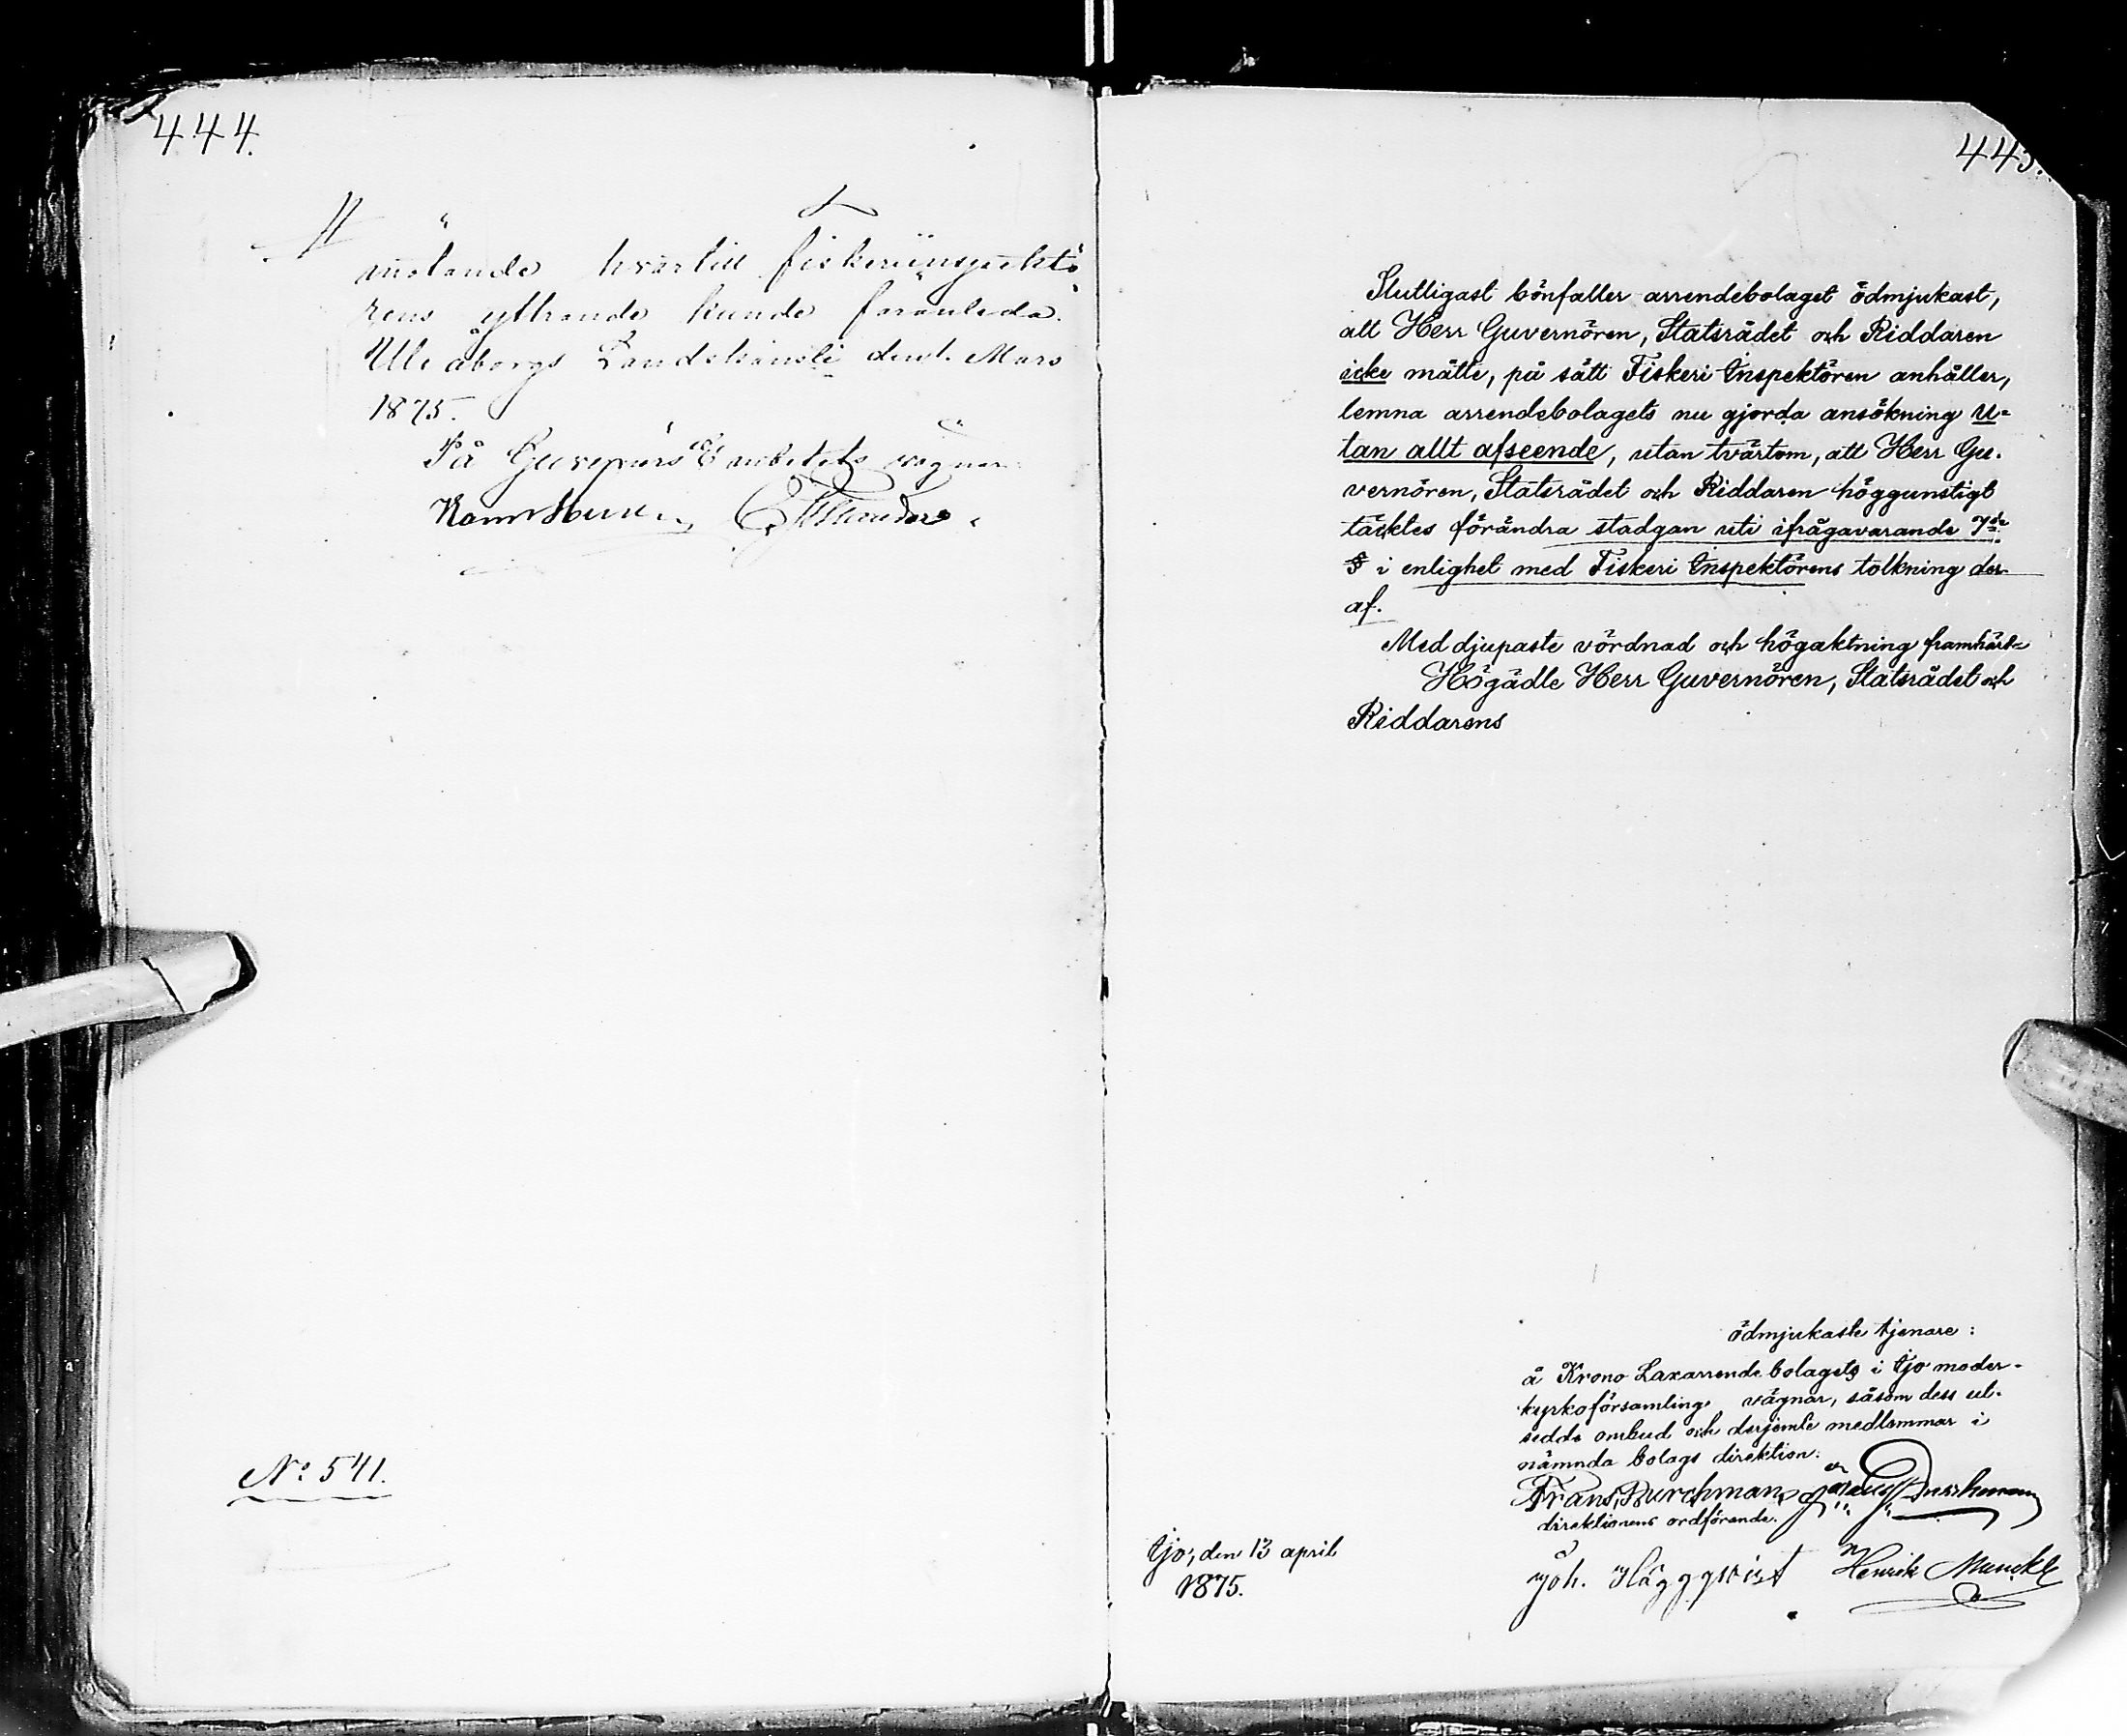 444.
mötande hvartill fiskeriinspektö
rens yttrande kunde föranleda.
Uleåborgs Landskansli den 1. Mars
1875.
På Guvernörs Embetets vägnar
No 541.
445.
Slutligast bönfaller arrendebolaget ödmjukast,
att Herr Guvernören, Statsrådet och Riddaren
icke måtte, på sätt Fiskeri Inspektören anhåller,
lemna arrendebolagets nu gjorda ansökning u-
tan allt afseende, utan tvärtom, att Herr Gu-
vernören, Statsrådet och Riddaren höggunstigt
täcktes förändra stadgan uti ifrågavarande 7de
§ i enlighet med Fiskeri Inspektörens tolkning der-
af.
Med djupaste vördnad och högaktning framhärda
Högädle Herr Guvernören, Statsrådet och
Riddarens
ödmjukaste tjenare:
å Krono Laxarrende bolagets i Ijo moder-
kyrkoförsamlings vägnar, såsom dess ut-
sedda ombud och derjemte medlemmar i
nämnda bolags direktion:
Frans Durchman
direktionens ordförande.
Ijo, den 13 april
1875.
Joh. Häggqvist Henrik Munck